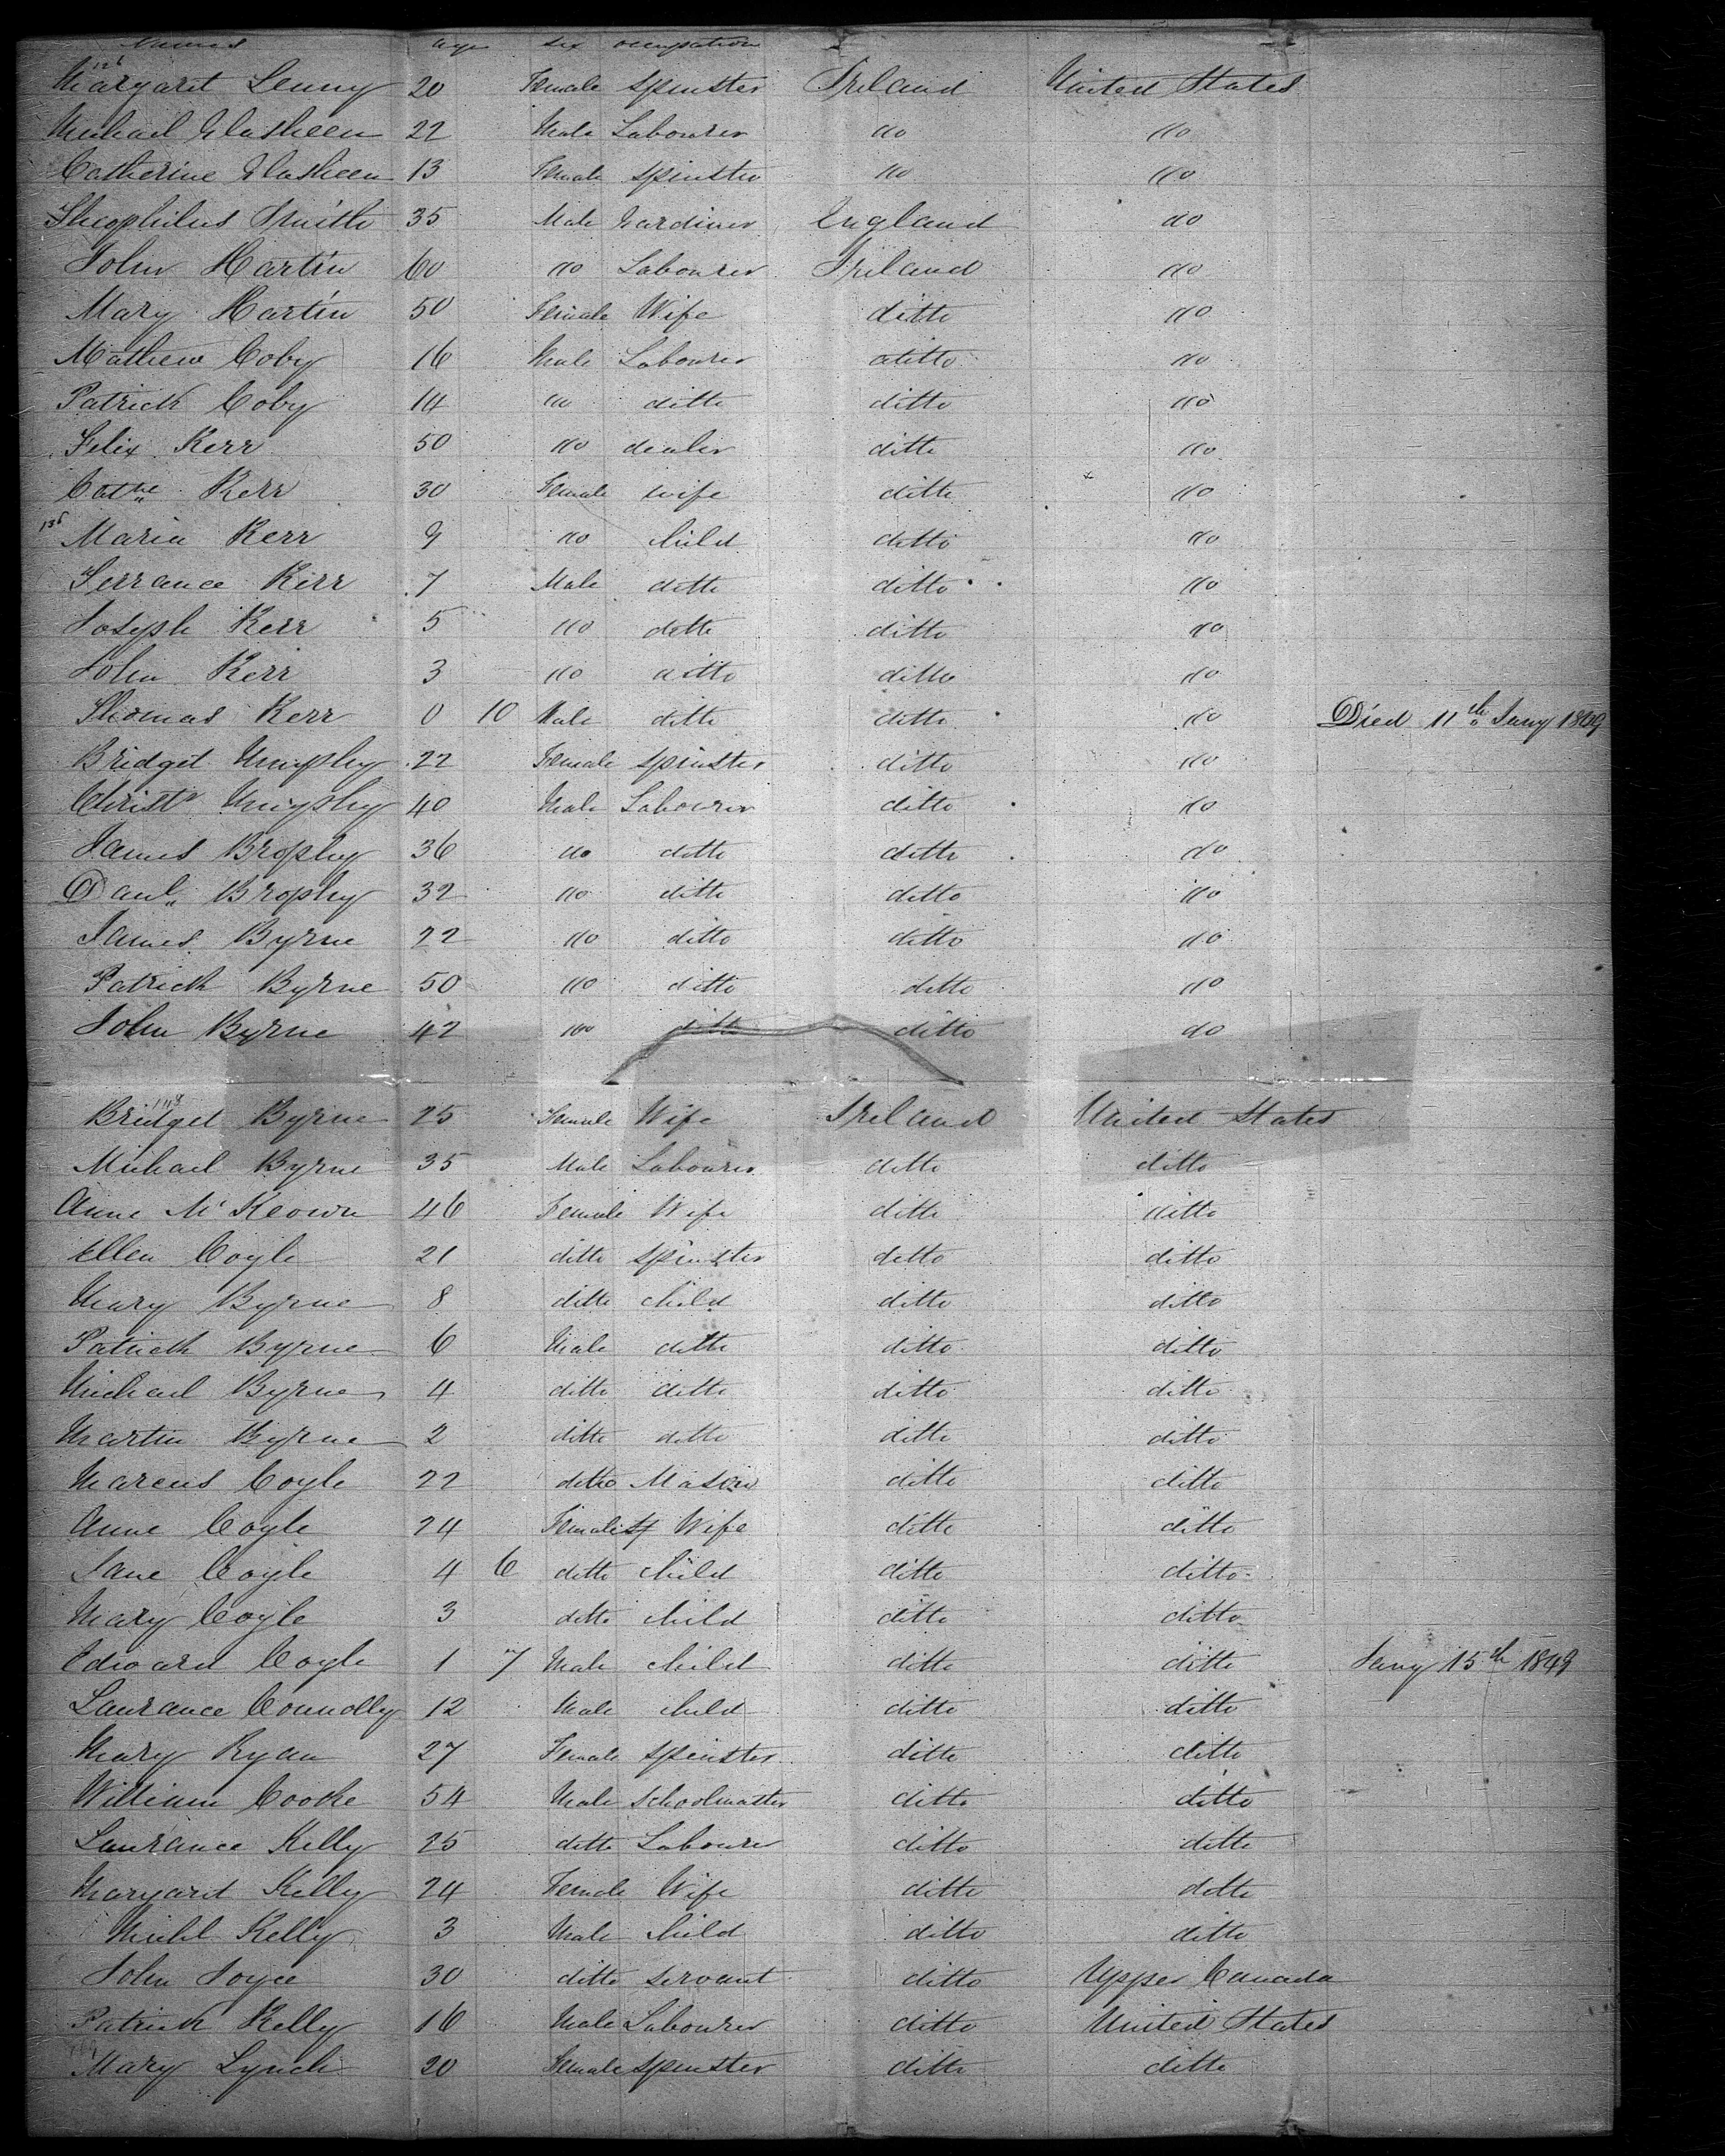 Names age sex occupation
126
Margaret Lenny 20 Female Spinster Ireland United States
Michael Glasheen 22 Male Labourer do do
Catherine Glasheen 13 Female Spinster do do
Theophilus Smith 35 Male Gardiner England do
John Martin 60 do Labourer Ireland do
Mary Martin 50 Female Wife ditto do
Mathew Coby 16 Male Labourer ditto do
Patrick Coby 14 do ditto ditto do
Felix Kerr 50 do dealer ditto do
Cathe Kerr 30 Female wife ditto do
136 Maria Kerr 9 do Child ditto do
Terrance Kerr 7 Male ditto ditto do
Joseph Kerr 5 do ditto ditto do
John Kerr 3 do ditto ditto do
Thomas Kerr 0 10 Male ditto ditto do Died 11th Jany 1849
Bridget Murphy 22 Female Spinster ditto do
Christr Murphy 40 Male Labourer ditto do
James Brophy 36 do ditto ditto do
Danl Brophy 32 do ditto ditto do
James Byrne 22 do ditto ditto do
Patrick Byrne 50 do ditto ditto do
John Byrne 42 do ditto ditto do
Bridget Byrne 25 Female Wife Ireland United States
Michael Byrne 35 Male Labourer ditto ditto
Anne McKeown 46 Female Wife ditto ditto
Ellen Coyle 21 ditto Spinster ditto ditto
Mary Byrne 8 ditto Child ditto ditto
Patrick Byrne 6 Male ditto ditto ditto
Michael Byrne 4 ditto ditto ditto ditto
Martin Byrne 2 ditto ditto ditto ditto
Marcus Coyle 22 ditto Mason ditto ditto
Anne Coyle 24 Female Wife ditto ditto
Jane Coyle 4 6 ditto Child ditto ditto
Mary Coyle 3 ditto Child ditto ditto
Edward Coyle 1 7 Male Child ditto ditto Jany 15th 1849
Laurance Connolly 12 Male Child ditto ditto
Mary Ryan 27 Female Spinster ditto ditto
William Cooke 54 Male Schoolmaster ditto ditto
Laurance Kelly 25 ditto Labourer ditto ditto
Margaret Kelly 24 Female Wife ditto ditto
Michl Kelly 3 Male Child ditto ditto
John Joyce 30 ditto Servant ditto Upper Canada
Patrick Kelly 16 Male Labourer ditto United States
Mary Lynch 20 Female Spinster ditto ditto